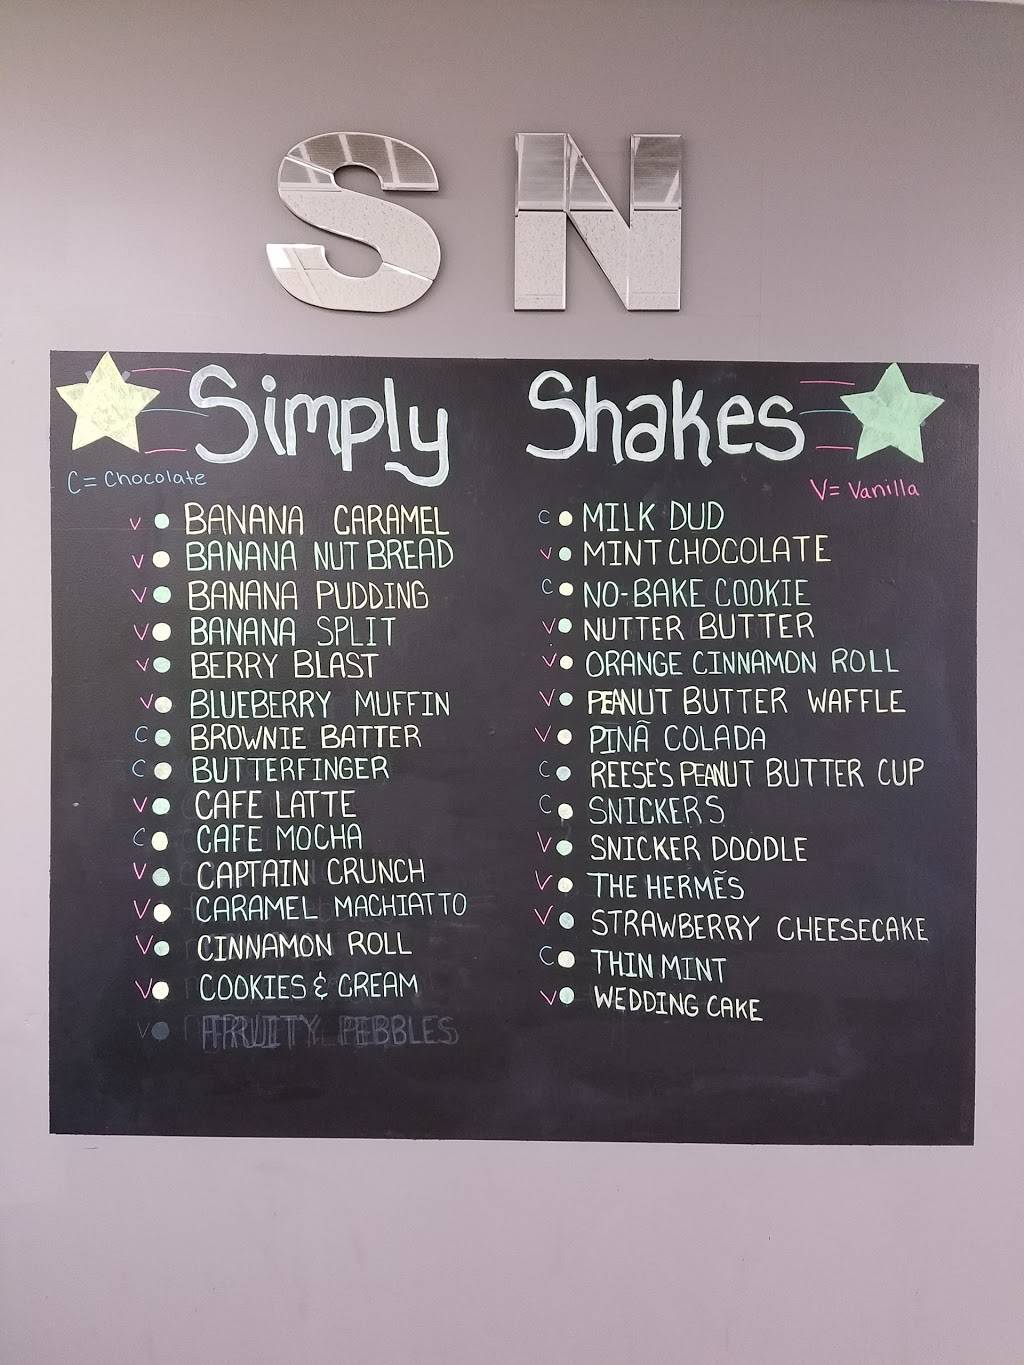 SN
Simply Shakes
C= Chocolate
V= Vanilla
V BANANA CARAMEL
V BANANA NUT BREAD
V BANANA PUDDING
V BANANA SPLIT
V BERRY BLAST
V BLUEBERRY MUFFIN
C BROWNIE BATTER
C BUTTERFINGER
V CAFE LATTE
C CAFE MOCHA
V CAPTAIN CRUNCH
V CARAMEL MACHIATTO
V CINNAMON ROLL
V COOKIES & CREAM
V FRUITY PEBBLES
C MILK DUD
V MINT CHOCOLATE
C NO-BAKE COOKIE
V NUTTER BUTTER
V ORANGE CINNAMON ROLL
V PEANUT BUTTER WAFFLE
V PINÃ COLADA
C REESE'S PEANUT BUTTER CUP
C SNICKERS
V SNICKER DOODLE
V THE HERMẼS
V STRAWBERRY CHEESECAKE
C THIN MINT
V WEDDING CAKE